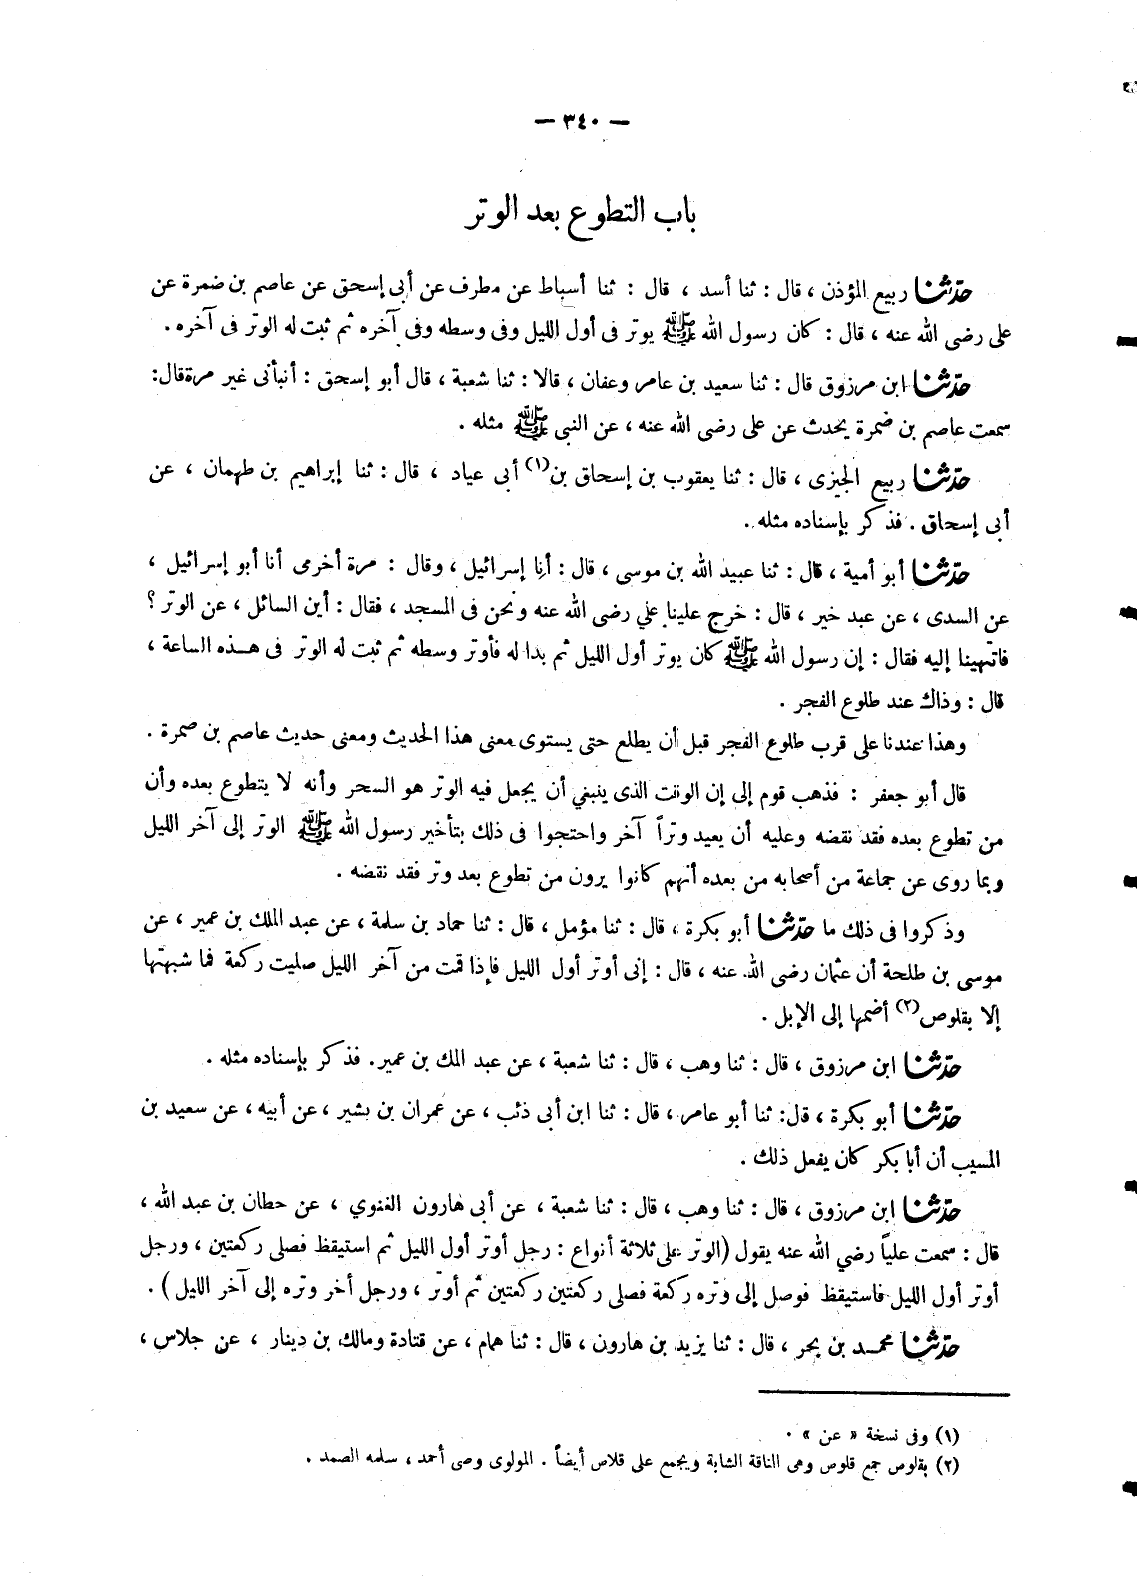 — ٣٤٠ —
باب التطوع بعد الوتر
حدّثنا ربيع المؤذن ، قال : ثنا أسد ، قال : ثنا أسباط عن مطرف عن أبى إسحق عن عاصم بن ضمرة عن
على رضى الله عنه ، قال : كان رسول الله ﷺ يوتر فى أول الليل وفى وسطه وفى آخره ثم ثبت له الوتر فى آخره .
حدّثنا ابن مرزوق قال : ثنا سعيد بن عامر وعفان ، قالا : ثنا شعبة ، قال أبو إسحق : أنبأنى غير مرة قال :
سمعت عاصم بن ضمرة يحدث عن على رضى الله عنه ، عن النبى ﷺ مثله .
حدّثنا ربيع الجيزى ، قال : ثنا يعقوب بن إسحاق بن(١) أبى عياد ، قال : ثنا إبراهيم بن طهمان ، عن
أبى إسحاق . فذكر بإسناده مثله .
حدّثنا أبو أمية ، قال : ثنا عبيد الله بن موسى ، قال : أنا إسرائيل ، وقال : مرة أخرى أنا أبو إسرائيل ،
عن السدى ، عن عبد خير ، قال : خرج علينا علي رضى الله عنه ونحن فى المسجد ، فقال : أين السائل ، عن الوتر ؟
فانتهينا إليه فقال : إن رسول الله ﷺ كان يوتر أول الليل ثم بدا له فأوتر وسطه ثم ثبت له الوتر فى هذه الساعة ،
قال : وذاك عند طلوع الفجر .
وهذا عندنا على قرب طلوع الفجر قبل أن يطلع حتى يستوى معنى هذا الحديث ومعنى حديث عاصم بن ضمرة .
قال أبو جعفر : فذهب قوم إلى إن الوقت الذى ينبغي أن يجعل فيه الوتر هو السحر وأنه لا يتطوع بعده وأن
من تطوع بعده فقد نقضه وعليه أن يعيد وتراً آخر واحتجوا فى ذلك بتأخير رسول الله ﷺ الوتر إلى آخر الليل
وبما روى عن جماعة من أصحابه من بعده أنهم كانوا يرون من تطوع بعد وتر فقد نقضه .
وذكروا فى ذلك ما حدّثنا أبو بكرة ، قال : ثنا مؤمل ، قال : ثنا حماد بن سلمة ، عن عبد الملك بن عمير ، عن
موسى بن طلحة أن عثمان رضى الله عنه ، قال : إنى أوتر أول الليل فإذا قمت من آخر الليل صليت ركعة فما شبهتها
إلا بقلوص(٢) أضمها إلى الإبل .
حدّثنا ابن مرزوق ، قال : ثنا وهب ، قال : ثنا شعبة ، عن عبد الملك بن عمير . فذكر بإسناده مثله .
حدّثنا أبو بكرة ، قال : ثنا أبو عامر ، قال : ثنا ابن أبى ذئب ، عن عمران بن بشير ، عن أبيه ، عن سعيد بن
المسيب أن أبا بكر كان يفعل ذلك .
حدّثنا ابن مرزوق ، قال : ثنا وهب ، قال : ثنا شعبة ، عن أبى هارون الغنوي ، عن حطان بن عبد الله ،
قال : سمعت علياً رضي الله عنه يقول (الوتر على ثلاثة أنواع : رجل أوتر أول الليل ثم استيقظ فصلى ركعتين ، ورجل
أوتر أول الليل فاستيقظ فوصل إلى وتره ركعة فصلى ركعتين ركعتين ثم أوتر ، ورجل أخر وتره إلى آخر الليل ) .
حدّثنا محمد بن بحر ، قال : ثنا يزيد بن هارون ، قال : ثنا همام ، عن قتادة ومالك بن دينار ، عن جلاس ،
(١) وفى نسخة « عن » .
(٢) بقلوص جمع قلوص وهى الناقة الشابة ويجمع على قلاص أيضاً . المولوى وصى أحمد ، سلمه الصمد .